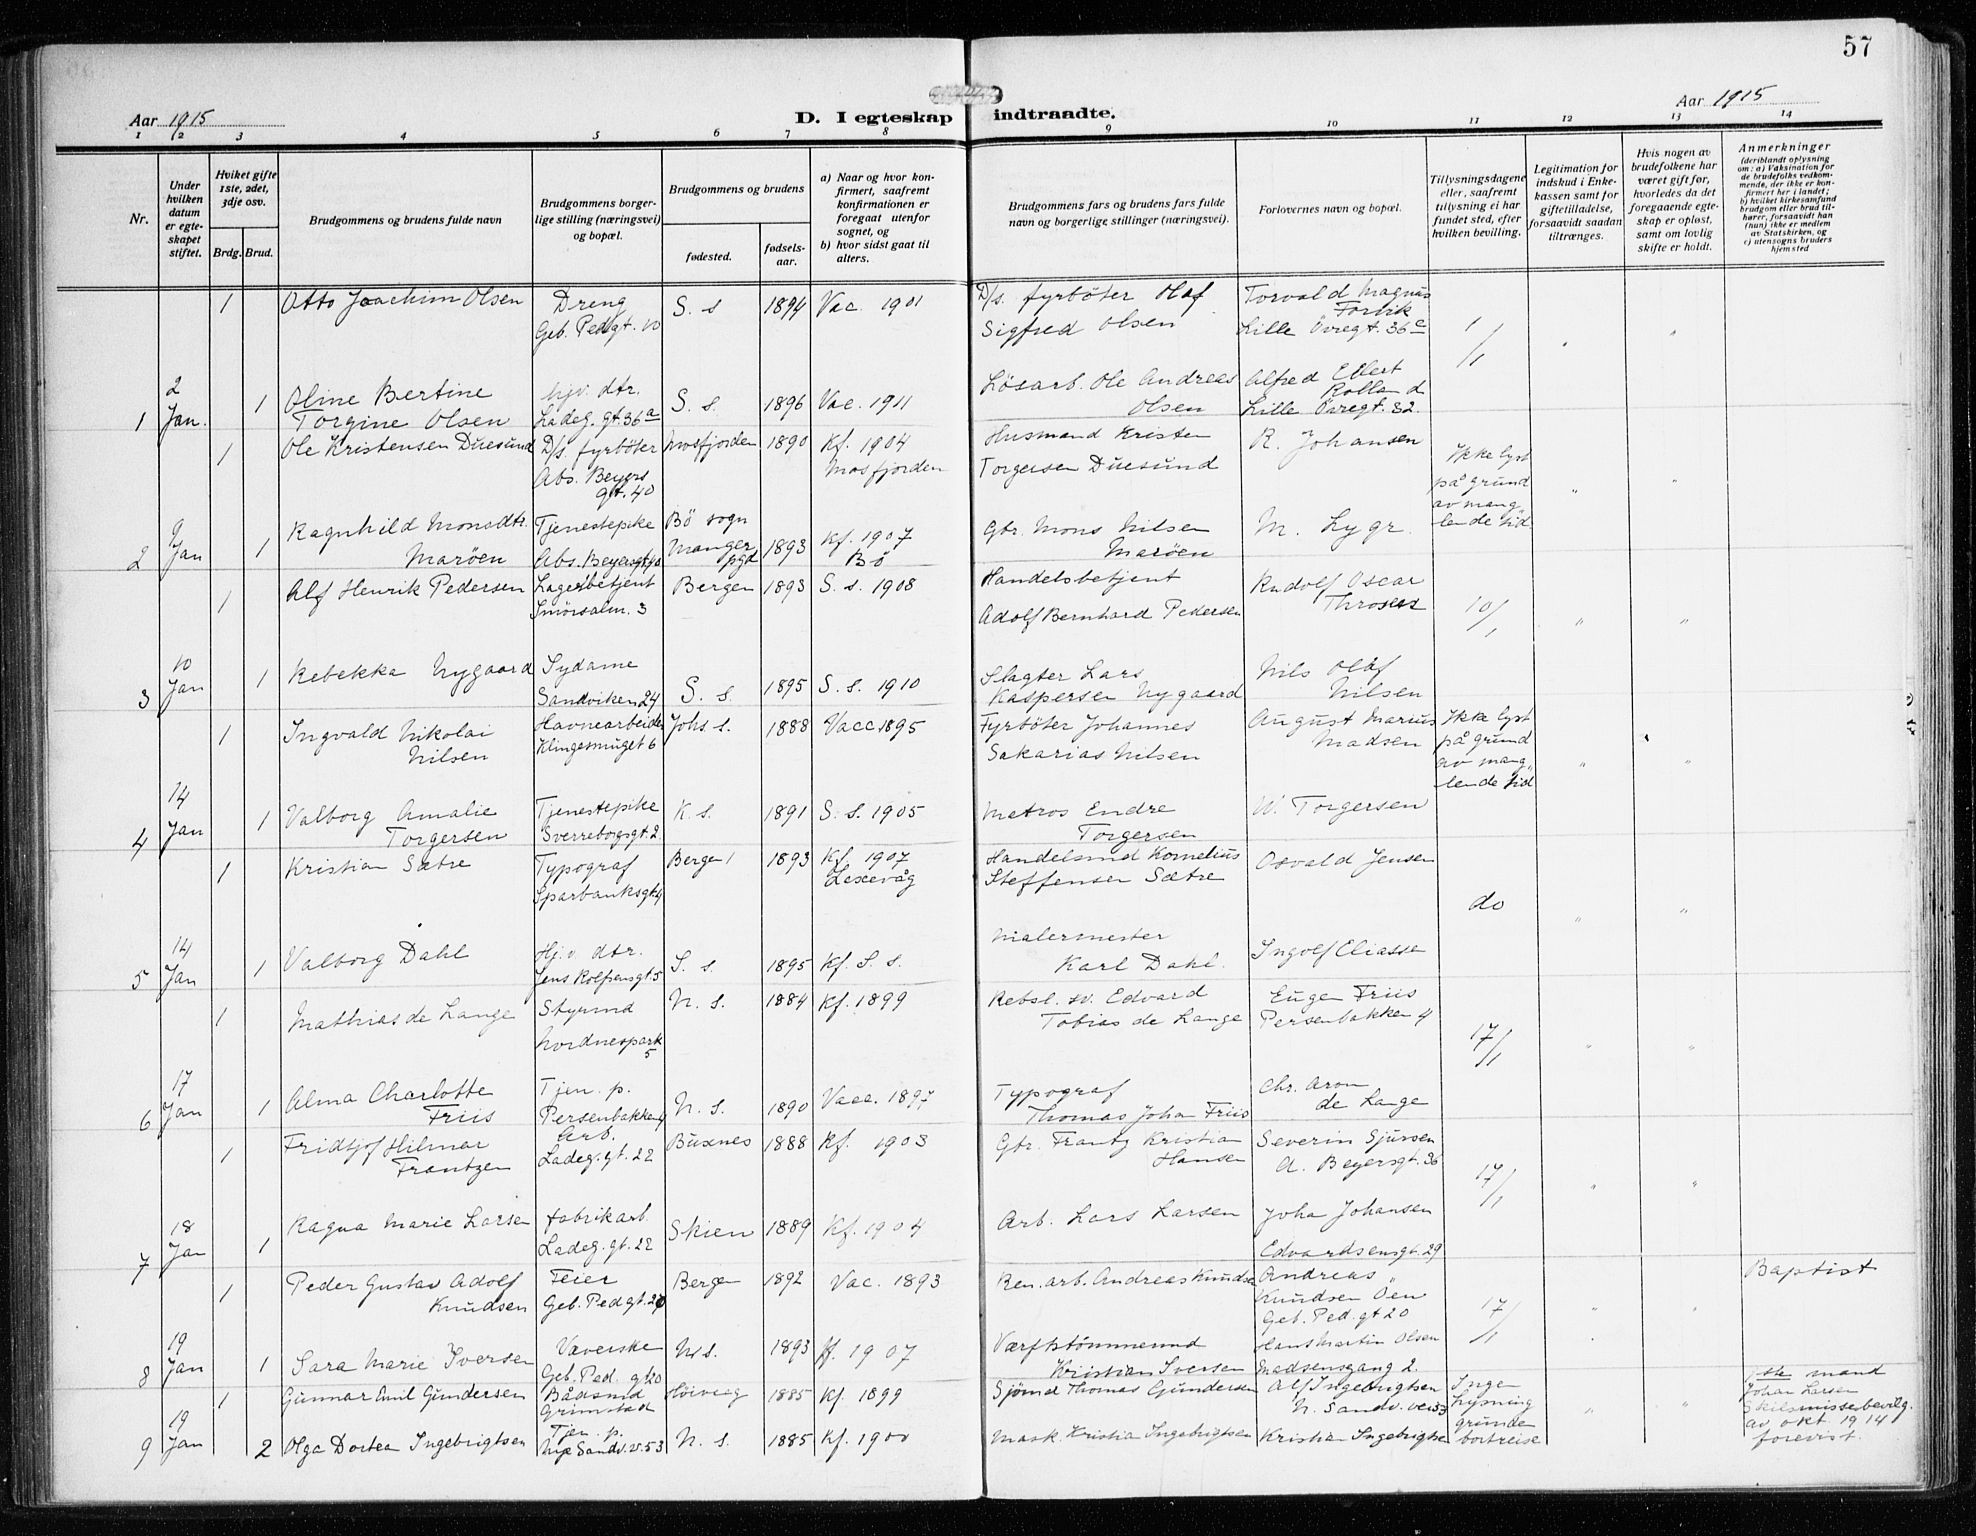 57
Aar 1915
D. I egteskap indtraadte.
Aar 1915
1 2 3 4 5 6 7 8 9 10 11 12 13 14
Nr.
Under hvilken datum er egteskapet stiftet.
Hvilket gifte 1ste, 2det, 3dje osv.
Brdg. Brud.
Brudgommens og brudens fulde navn
Brudgommens borgerlige stilling (næringsvei) og bopæl.
Brudgommens og brudens
fødested.
fødselsaar.
a) Naar og hvor konfirmert, saafremt konfirmationen er foregaat utenfor sognet, og
b) hvor sidst gaat til alters.
Brudgommens fars og brudens fars fulde navn og borgerlige stillinger (næringsvei).
Forlovernes navn og bopæl.
Tillysningsdagene eller, saafremt tillysning ei har fundet sted, efter hvilken bevilling.
Legitimation for indskud i Enkekassen samt for giftetilladelse, forsaavidt saadan tiltrænges.
Hvis nogen av brudefolkene har været gift før, hvorledes da det foregaaende egteskap er opløst, samt om lovlig skifte er holdt.
Anmerkninger (deriblandt oplysning om: a) Vaksination for de brudefolks vedkommende, der ikke er konfirmert her i landet; b) hvilket kirkesamfund brudgom eller brud tilhører, forsaavidt han (hun) ikke er medlem av Statskirken, og c) utensogns bruders hjemsted
1 Otto Joachim Olsen Dreng S. s 1894 Vac. 1901 D/s. fyrbøter Olaf Torvald Magnus
Geb. Pedgt. 10 Sigfred Olsen Lille Øvregt. 36c 1/1 " "
2 Oline Bertine hjv. dtr. Løsarb. Ole Andreas Alfred Ellert
1 Jan. 1 Torgine Olsen Ladeg. gt. 36a S. s. 1896 Vac. 1911 Olsen Lille Øvregt. 32
1 Ole Kristensen Duesund D/s. fyrbøter Mosfjorden 1890 Kf. 1904 Husmand Kristen R. Johansen Ikke lyst
Abs. Beyers Masfjorden Torgersen Duesund på grund
gt. 40 av mang
9 Ragnhild Monsdtr. Tjenestepike Bø sogn Gbr. Mons Nilsen M. Lygr. lende tid " "
2 Jan 1 Marøen Abs. Beyersgt 40 Manger pgd 1893 Kf. 1907 Bø Marøen
1 Alf Henrik Pedersen Lagerbetjent Bergen 1893 S. s. 1908 Handelsbetjent Rudolf Oscar
Smörsalm. 3 Adolf Bernhard Pedersen 10/1 " "
10 Rebekka Nygaard Sydame Slagter Lars Nils Olaf
3 Jan 1 Sandviken 24 S. s. 1895 S. s. 1910 Kaspersen Nygaard Nilsen
1 Ingvald Nikolai Havnearbeider Johs s. 1888 Vacc 1895 Fyrböter Johannes August Marius Ikke lyst
Nilsen Klingesmuget 6 Sakarias Nilsen Madsen på grund
av mang-
14 lende tid " "
4 Jan 1 Valborg Amalie Tjenestepike K. s. 1891 S. s. 1905 Matros Endre W. Torgersen
Torgersen Sverreborgsgt. 2 Torgersen
1 Kristian Sætre Typograf Bergen 1893 Kf. 1907 Handelsmd Kornelius Osvald Jensen
Sparbanksgt. 4 Steffensen Sætre do " "
14 Valborg Dahl Hj.v. dtr. Malermester Ingolf Eliassen
5 Jan 1 Jens Rolfsensgt. 5 S. s. 1895 Kf. S s. Karl Dahl.
1 Mathias de Lange Styrmd N. s. 1884 Kf. 1899 Rebsl. sv. Edvard Eugen Friis
Nordnespark 5 Tobias de Lange Persenbakken 4 17/1 " "
17 Alma Charlotte Tjen. p. Typograf Chr. Aron
6 Jan 1 Friis Persenbakken 4 N. s. 1890 Vacc. 1897 Thomas Johan Friis de Lange
1 Fridtjof Hilmar Arb. Buxnes 1888 Kf. 1903 Gbr. Frantz Kristian Severin Sjursen
Frantzen Ladeg. gt. 22 Hansen A. Beyersgt. 36 17/1 " "
18 Ragna Marie Larsen Fabrikarb. Skien 1889 Kf. 1904 Arb. Lars Larsen Joha Johansen
7 Jan 1 Ladeg. gt. 22 Edvardsensgt. 29
1 Peder Gustav Adolf Feier Bergen 1892 Vac. 1893 Ren. arb. Andreas Knudsen Andreas Baptist
Knudsen Geb. Pedgt. 20 Knudsen Øen
Geb. Ped. gt 20 17/1 " "
19 Sara Marie Iversen Væverske N. s. 1893 Kf. 1907 Værftstømmermd Hans Martin Olsen
8 Jan 1 Geb. Ped. gt. 20 Kristian Iversen Madsensgang 2.
1 Gunnar Emil Gundersen Bådsmd 1885 Kf. 1899 Sjømd Thomas Gundersen Alf Ingebrigtsen Ingen 1ste mand
Grimstad N. Sandv. vei 53 lysning Johan Larsen
19 Tjen. p. grunde " " Skilsmissebevilg.
9 Jan 2 Olga Dortea Ingebrigtsen Nye Sandv. v. 53 N. s. 1885 Kf. 1900 Mask. Kristian Ingebrigtsen Kristian Ingebrigtsen bortreise av okt. 1914
forevist.